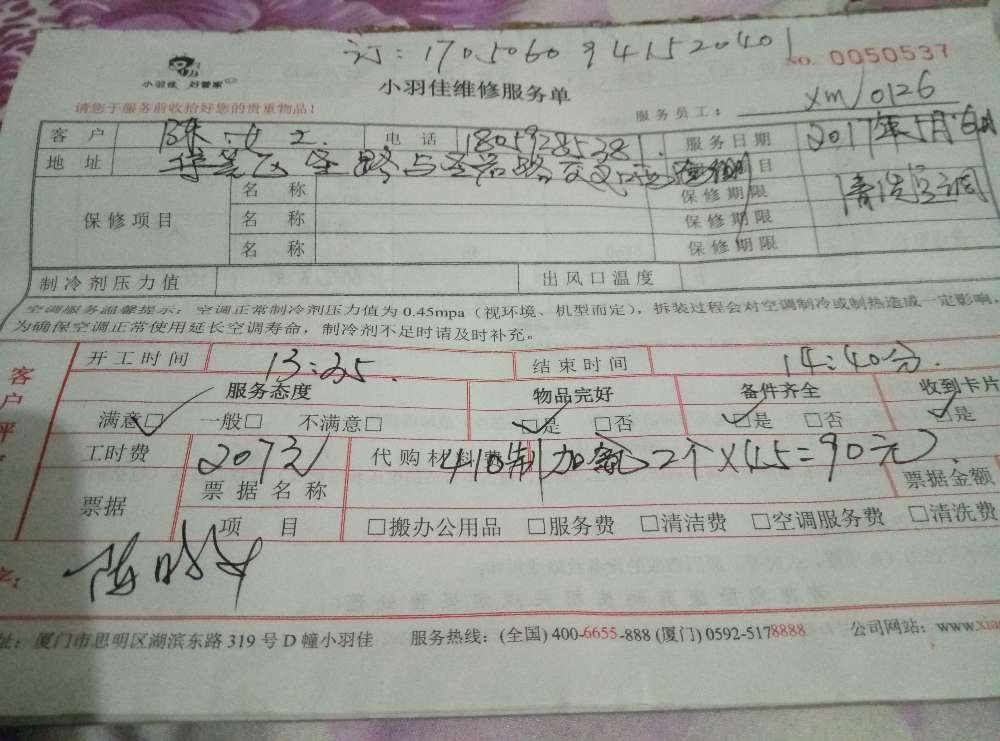 订：1705060941520401
小羽佳 好管家
No. 0050537
小羽佳维修服务单
请您于服务前收拾好您的贵重物品！
服务员工：xm/0126
客户 陈女士 电话 1805928538 服务日期 2017年5月
地址 路与 路交 目 清洗空调
保修项目
名称 保修期限
名称 保修期限
名称 保修期限
制冷剂压力值 出风口温度
空调服务温馨提示：空调正常制冷剂压力值为 0.45mpa（视环境、机型而定），拆装过程会对空调制冷或制热造成一定影响，
为确保空调正常使用延长空调寿命，制冷剂不足时请及时补充。
客户评
开工时间 13:35. 结束时间 14:40分.
服务态度 物品完好 备件齐全 收到卡片
满意☑ 一般□ 不满意□ ☑是 □否 ☑是 □否 ☑是
工时费 207元 代购材料费 410制加氟2个X45=90元
票据 票据名称 票据金额
项目 □搬办公用品 □服务费 □清洁费 □空调服务费 □清洗费
陈明
址：厦门市思明区湖滨东路 319 号 D 幢小羽佳 服务热线：(全国) 400-6655-888 (厦门) 0592-5178888 公司网站：www.xia